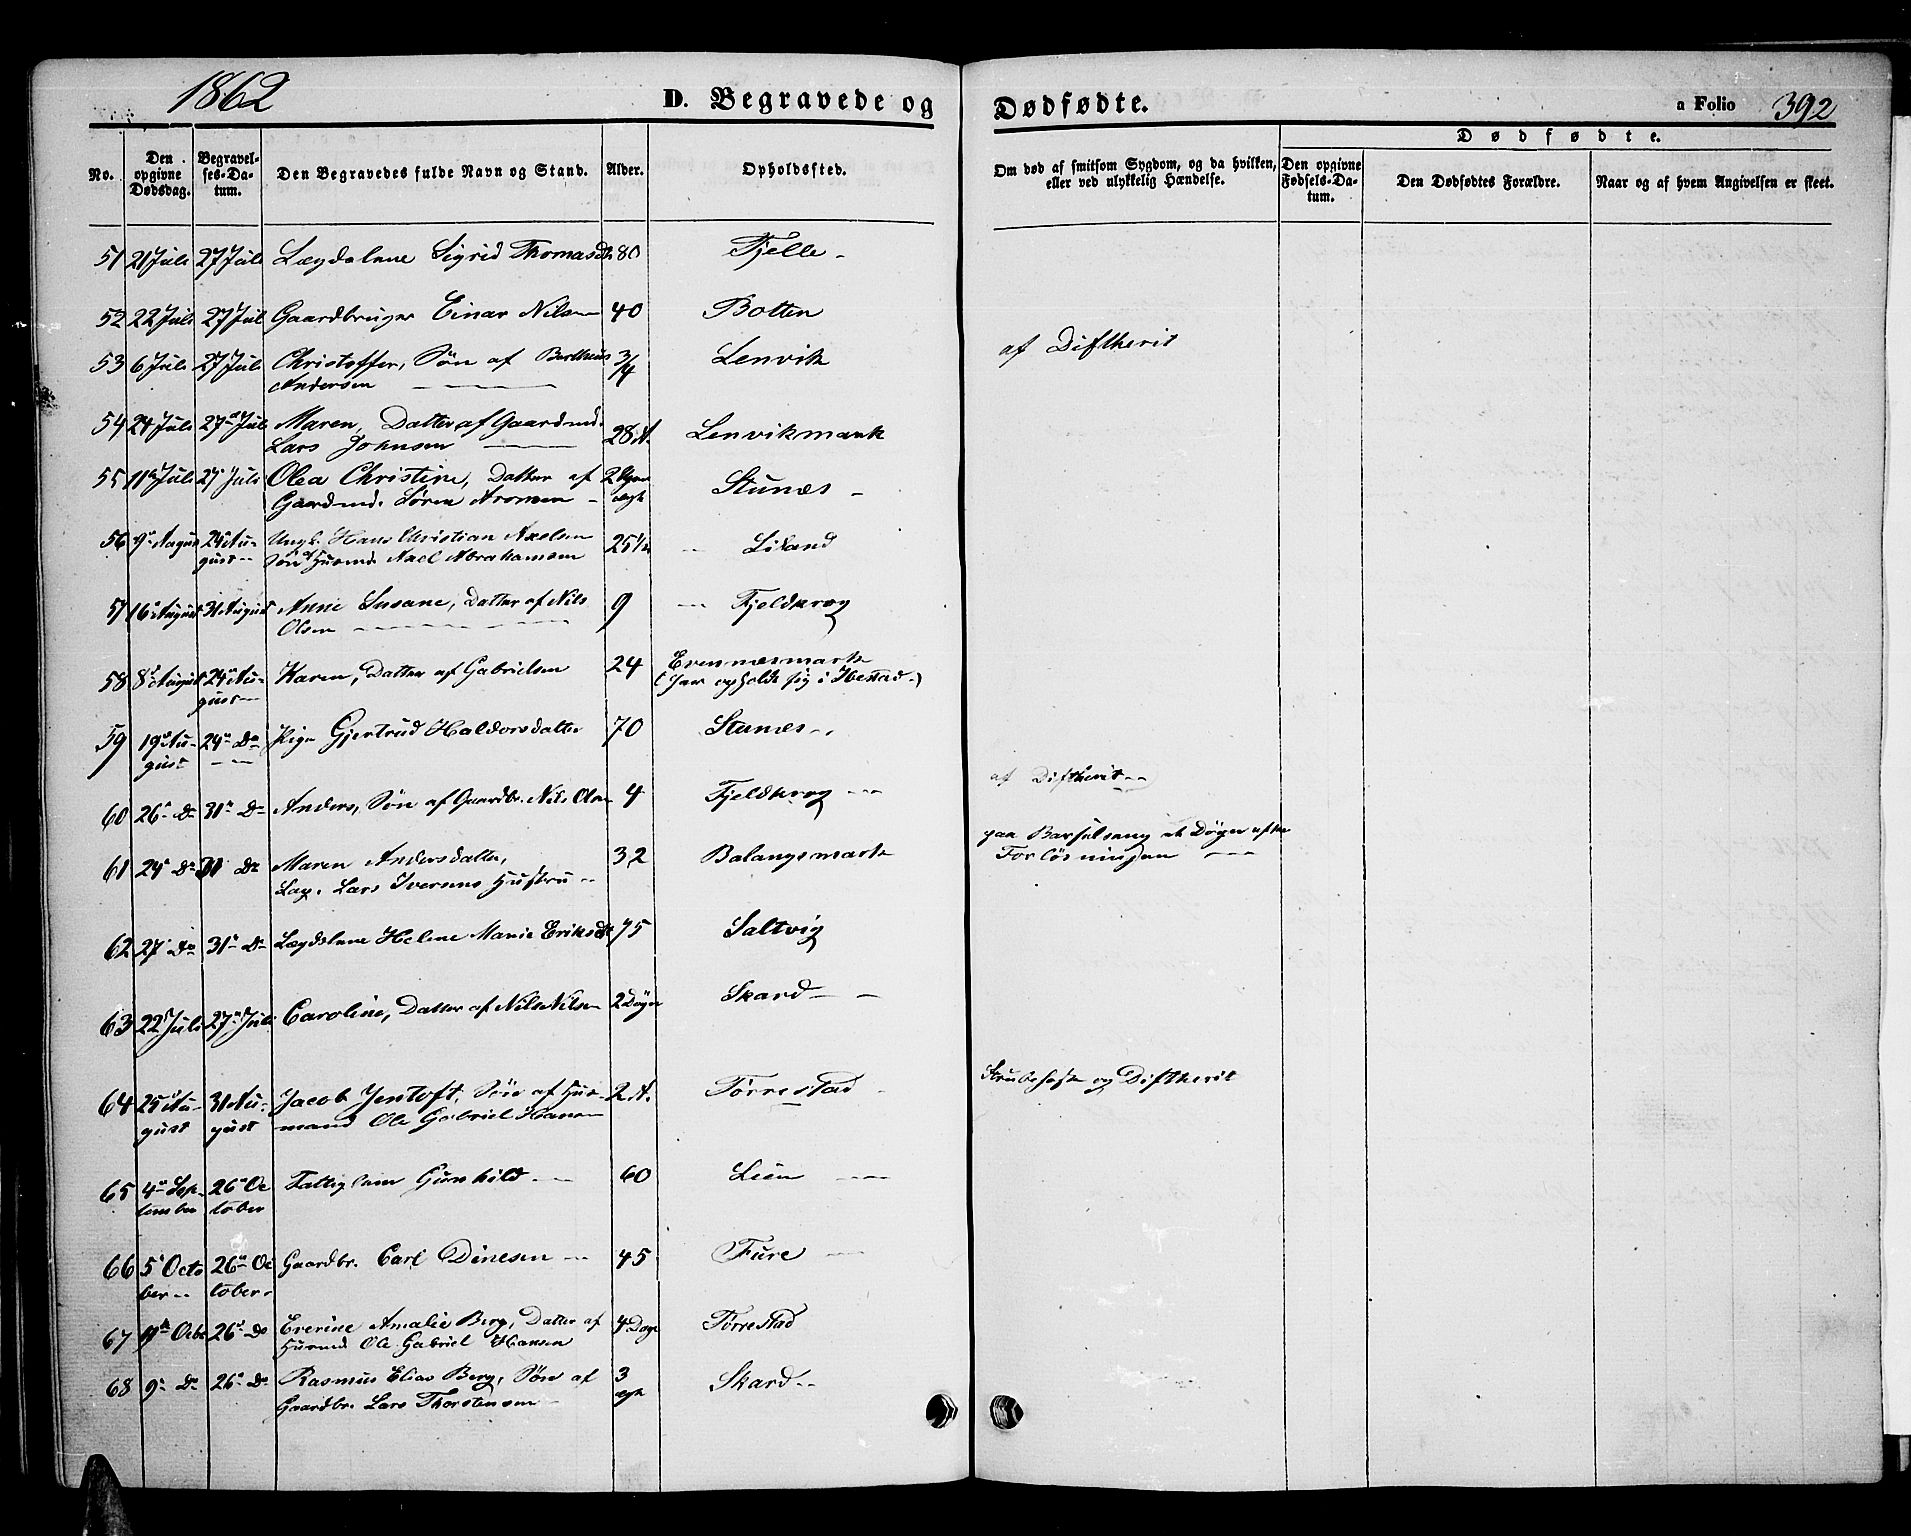 1862
D. Begravede og Dødfødte.
a Folio 392
No.
Den opgivne Dødsdag.
Begravelses-Datum.
Den Begravedes fulde Navn og Stand.
Alder.
Opholdssted.
Om død af smitsom Sygdom, og da hvilken, eller ved ulykkelig Hændelse.
Dødfødte.
Den opgivne Fødsels-Datum.
Den Dødfødtes Forældre.
Naar og af hvem Angivelsen er skeet.
51 21 Juli 27 Juli Lægdslem Sigrid Thomasdt 80 Fjelle -
52 22 Juli 27 Juli Gaardbruger Einar Nilsen 40 Botten
53 6 Juli 27 Juli Christoffer, Søn af Berthius 3/4 Lenvik af Diftherit
Andersen
54 24 Juli 27 Juli Maren, Datter af Gaardmd. 28 A. Lenvikmark
Lars Johnsen
55 11 Juli 27 Juli Olea Christine, Datter af 2 Stunæs -
Gaardmd. Søren Aronsen -
56 9 August 24 Au- Ungk. Hans Christian Axelsen 25 1/2 Liland
gust Søn af Husmd. Axel Abrahamsen
57 16 August 31 August Anne Susane, Datter af Nils 9 Fjeldkrog
Olsen
58 8 August 24 Au- Karen, Datter af Gabrielsen 24 Evennesmark
gust (har opholdt sig i Ibestad -)
59 19 Au- 24 Do Pige Gjertrud Haldorsdatter 70 Stunæs
gust
60 26 Do 31 Do Anders, Søn af Gaardbr. Nils Olsen 4 Fjeldkrog af Diftherit
61 24 Do 31 Do Maren Andersdatter, 32 Balangsmark paa Barselseng et Døgn efter
Lap. Lars Iversens Hustru Forløsningen
62 27 Do 31 Do Lægdslem Helene Marie Eriksdt 75 Saltvig
63 22 Juli 27 Juli Caroline, Datter af Nils Nilsen 2 Døgn Skard
64 25 Au- 31 Au- Jacob Jentoft, Søn af Hus- 2 A. Tørrestad Strubehoste og Diftherit
gust gust mand Ole Gabriel Hansen
65 4 Sep- 26 Oc Fattiglem Gunhild 60 Lien
tember tober
66 5 Octo 26 Oc Gaardbr. Carl Dinesen 45 Fure
ber tober
67 Octb 26 Do Everine Amalie Berg, Datter af 4 Dage Tørrestad
Husmd Ole Gabriel Hansen
68 9 Do 26 Do Rasmus Elias Berg, Søn af 3 Skard
Gaardbr. Lars Thorstensen